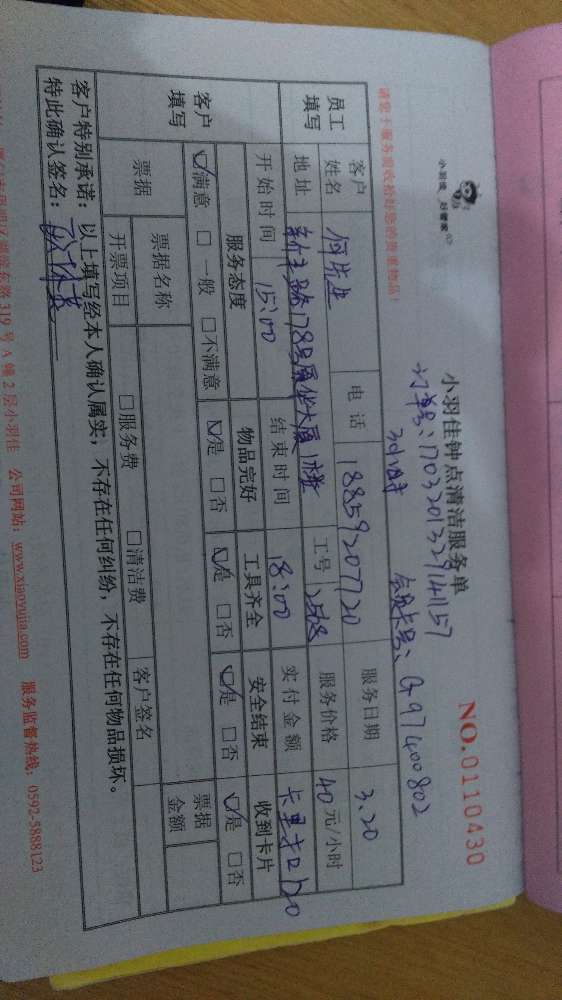 小羽佳 好管家
小羽佳钟点清洁服务单
NO.0110430
订单号:1703201329141157
3小时
会员卡号:G97400802
请您于服务前收拾好您的贵重物品!
员工填写 客户姓名 何先生 电话 18859207720 服务日期 3.20
地址 178号 大厦 工号 服务价格 40元/小时
开始时间 15:00 结束时间 18:00 实付金额 卡里扣120
客户填写 服务态度 物品完好 工具齐全 安全结束 收到卡片
☑满意 □一般 □不满意 ☑是 □否 ☑是 □否 ☑是 □否 ☑是 □否
票据 票据名称 客户签名 票据金额
开票项目 □服务费 □清洁费
客户特别承诺:以上填写经本人确认属实,不存在任何纠纷,不存在任何物品损坏。
特此确认签名:
东路319号A幢2层小羽佳 公司网站:www.xiaoyujia.com 服务监督热线:0592-5888123